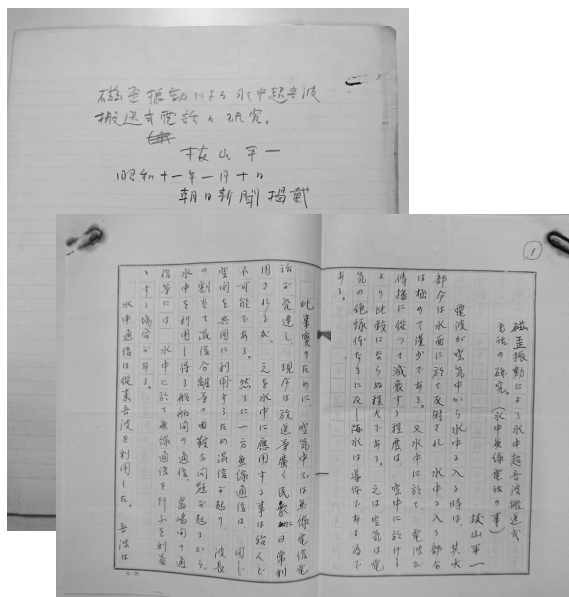 磁歪振動による水中超音波
搬送式電話の研究。
抜山平一
昭和十一年一月十日
朝日新聞掲載
1
磁歪振動による水中超音波搬送式
電話の研究。(水中無線電話の事)
抜山平一
電波が空気中から水中に入る時は、其大
部分は水面に於て反射され、水中に入る部分
は極めて僅少である。又水中に於て、電波が
伝播に従つて減衰する程度は、空中に於ける
より比較にならぬ程大である。之は空気は電
気の絶縁体なるに反し海水は導体である為で
ある。
此事実のために、空気中では無線電信電
話が発達し、現今は放送等廣く民衆に日常利
用されるが、之を水中に應用する事は殆んど
不可能である。然るに一方無線通信は、同じ
空間を共同に利用するため混信が起り、波長
の割当て混信分離等の困難な問題が起るから、
水中を利用し得る船舶間の通信、島嶼間の通
信等には、水中に於て無線通信を行ふを利益
とする場合がある。
水中通信は従来音波を利用した。音波は